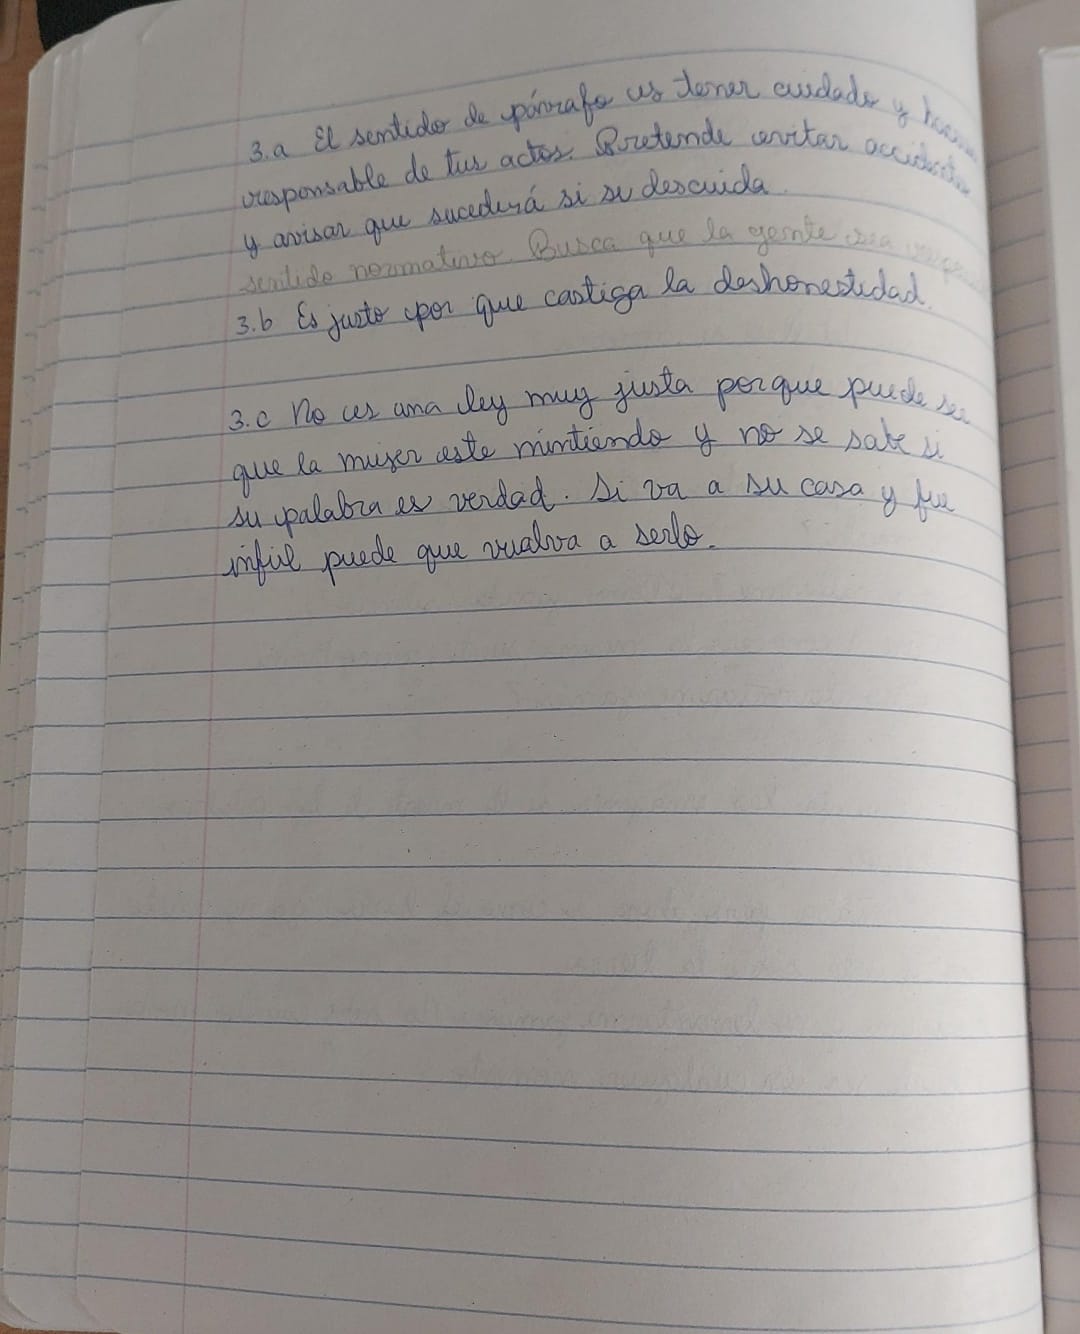 3.a El sentido de párrafo es tener cuidado y
responsable de tus actos. Pretende evitar
y avisar que sucederá si se descuida.
sentido normativo. Busca que la gente sea
3.b Es justo por que castiga la deshonestidad.
3.c No es una ley muy justa porque puede ser
que la mujer este mintiendo y no se sabe si
su palabra es verdad. Si va a su casa y fue
infiel puede que vualva a serlo.